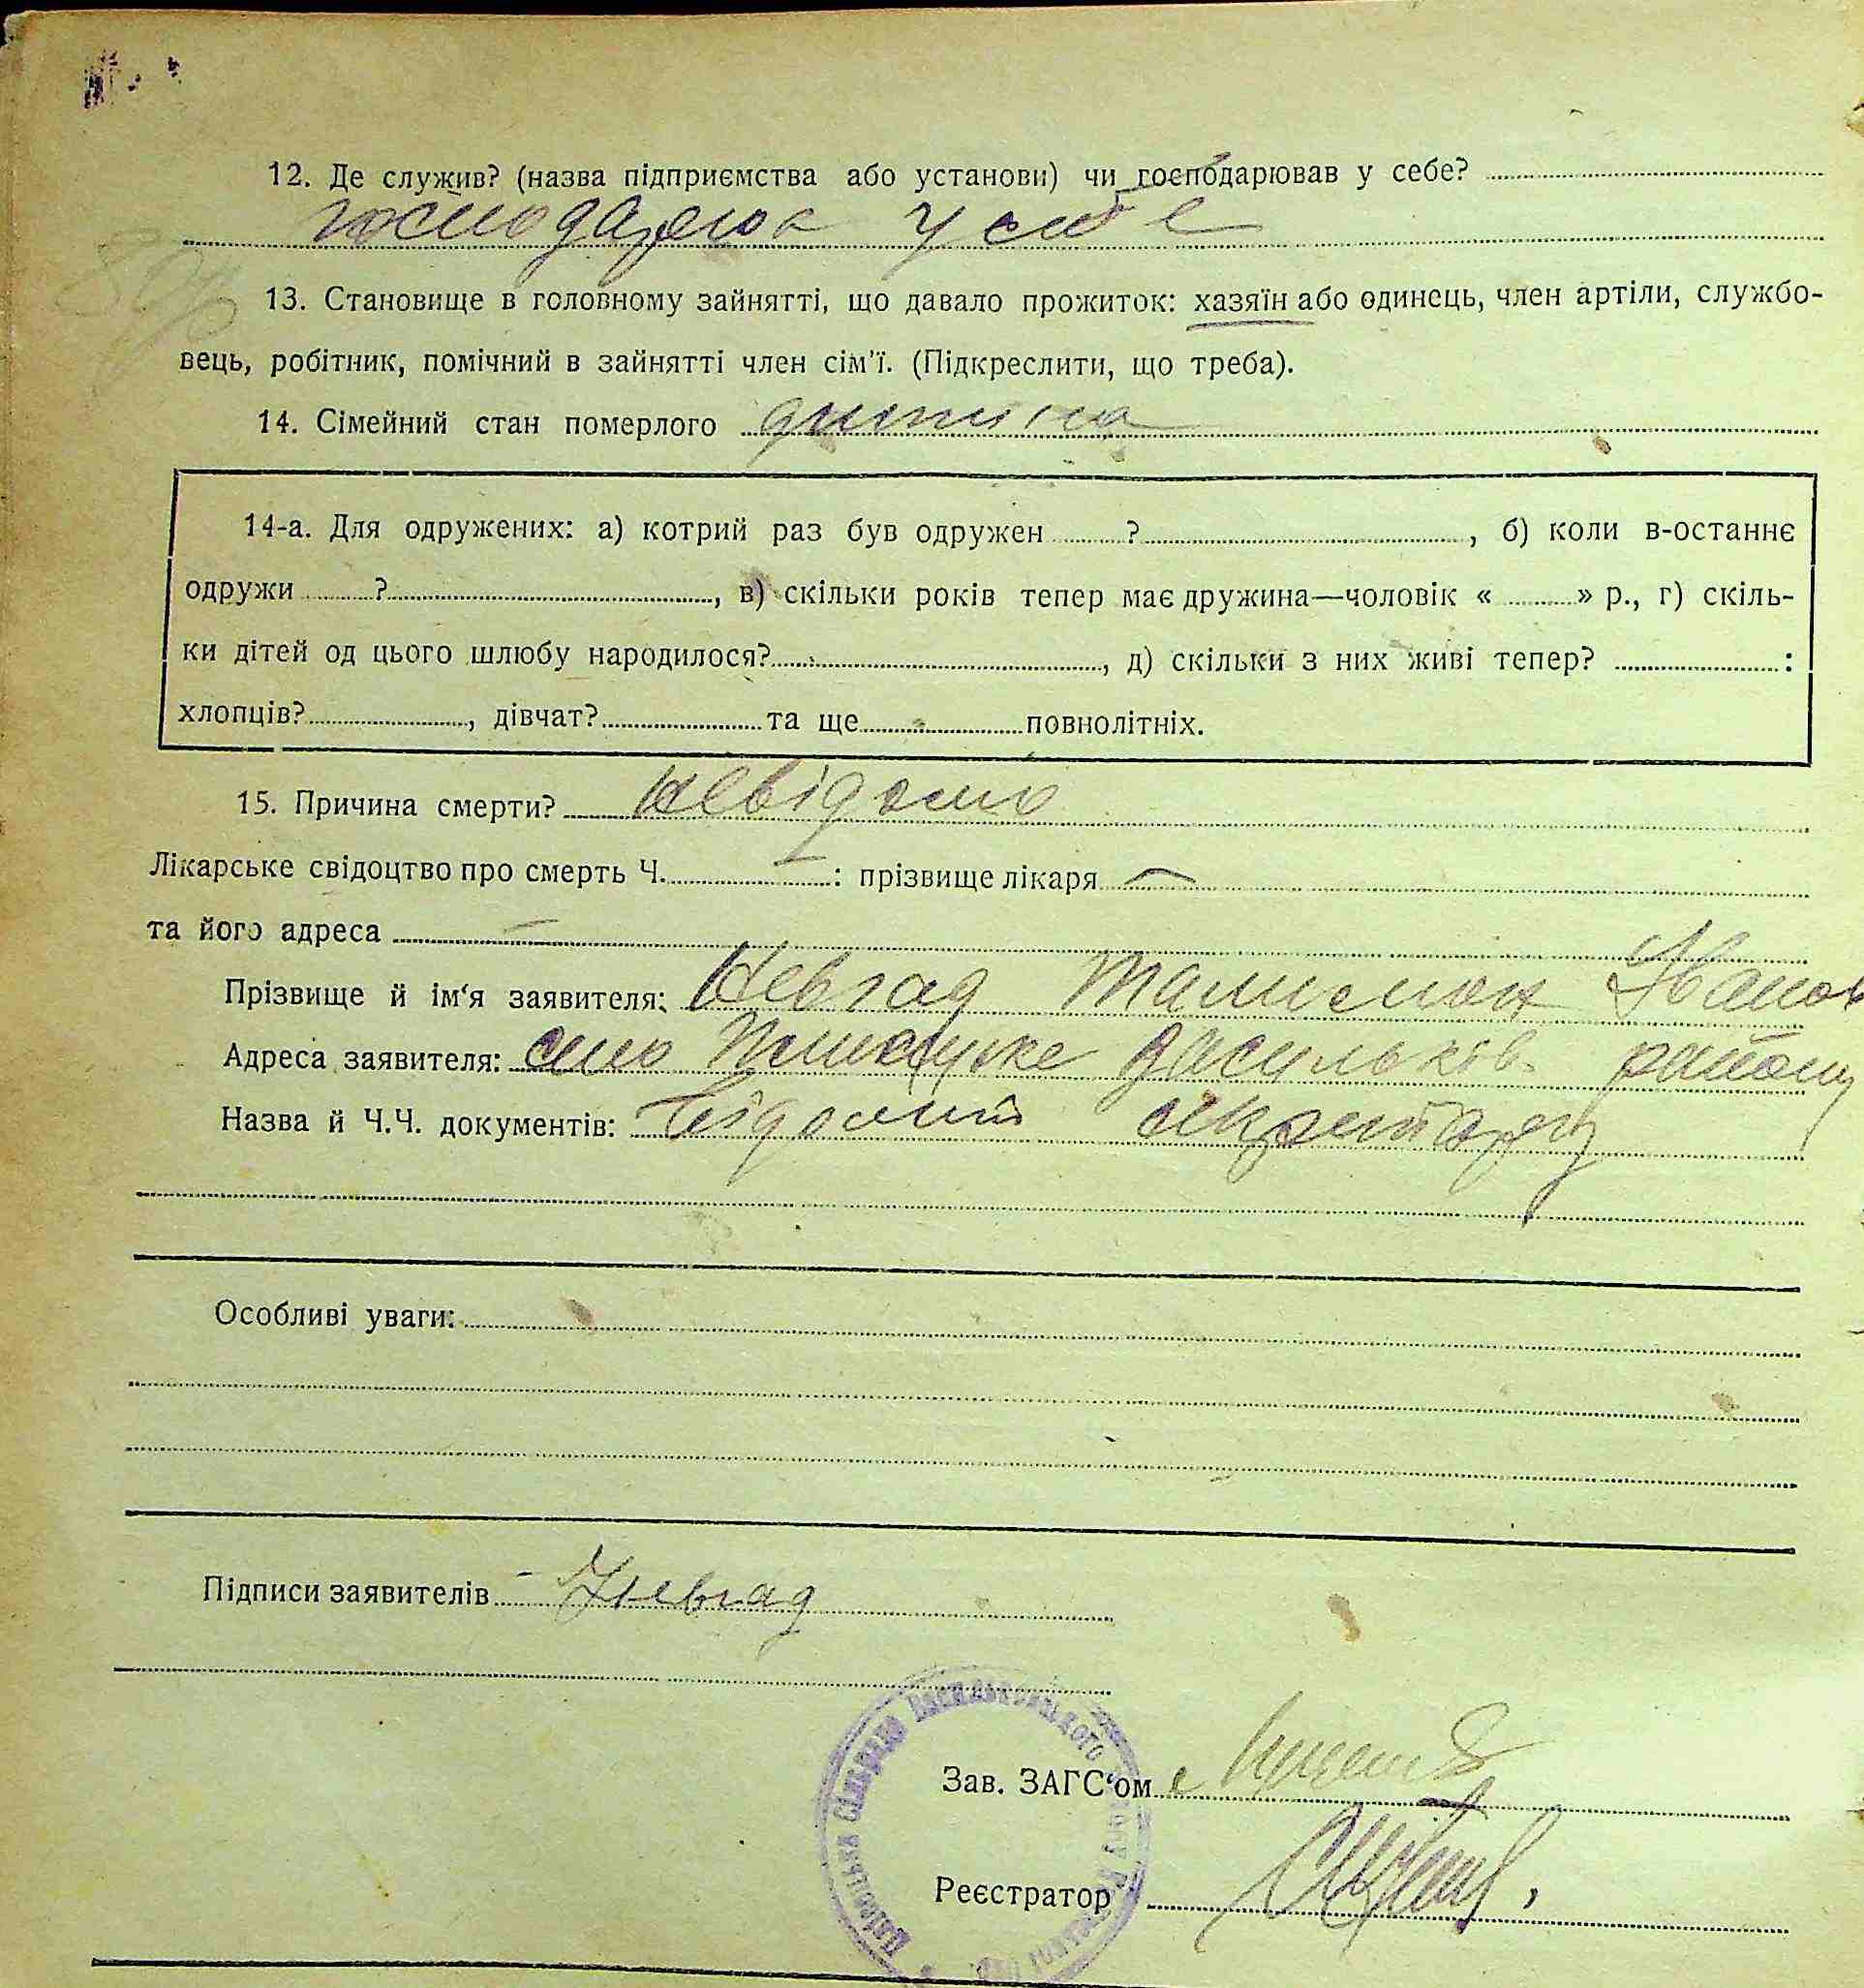 12. Де служив? (назва підприємства або установи) чи господарював у себе?
господарював у себе
13. Становище в головному зайнятті, що давало прожиток: хазяїн або одинець, член артіли, службо-
вець, робітник, помічний в зайнятті член сім'ї. (Підкреслити, що треба).
14. Сімейний стан померлого дитина
14-а. Для одружених: а) котрий раз був одружен ? , б) коли в-останнє
одружи ? , в) скільки років тепер має дружина—чоловік « » р., г) скіль-
ки дітей од цього шлюбу народилося? , д) скільки з них живі тепер? :
хлопців? , дівчат? та ще повнолітніх.
15. Причина смерти? невідомо
Лікарське свідоцтво про смерть Ч. — : прізвище лікаря —
та його адреса —
Прізвище й ім'я заявителя: Невгад Іванов
Адреса заявителя: село Васильків. району
Назва й Ч.Ч. документів: Відомий секретарю
Особливі уваги:
Підписи заявителів Невгад
Зав. ЗАГС'ом
Реєстратор